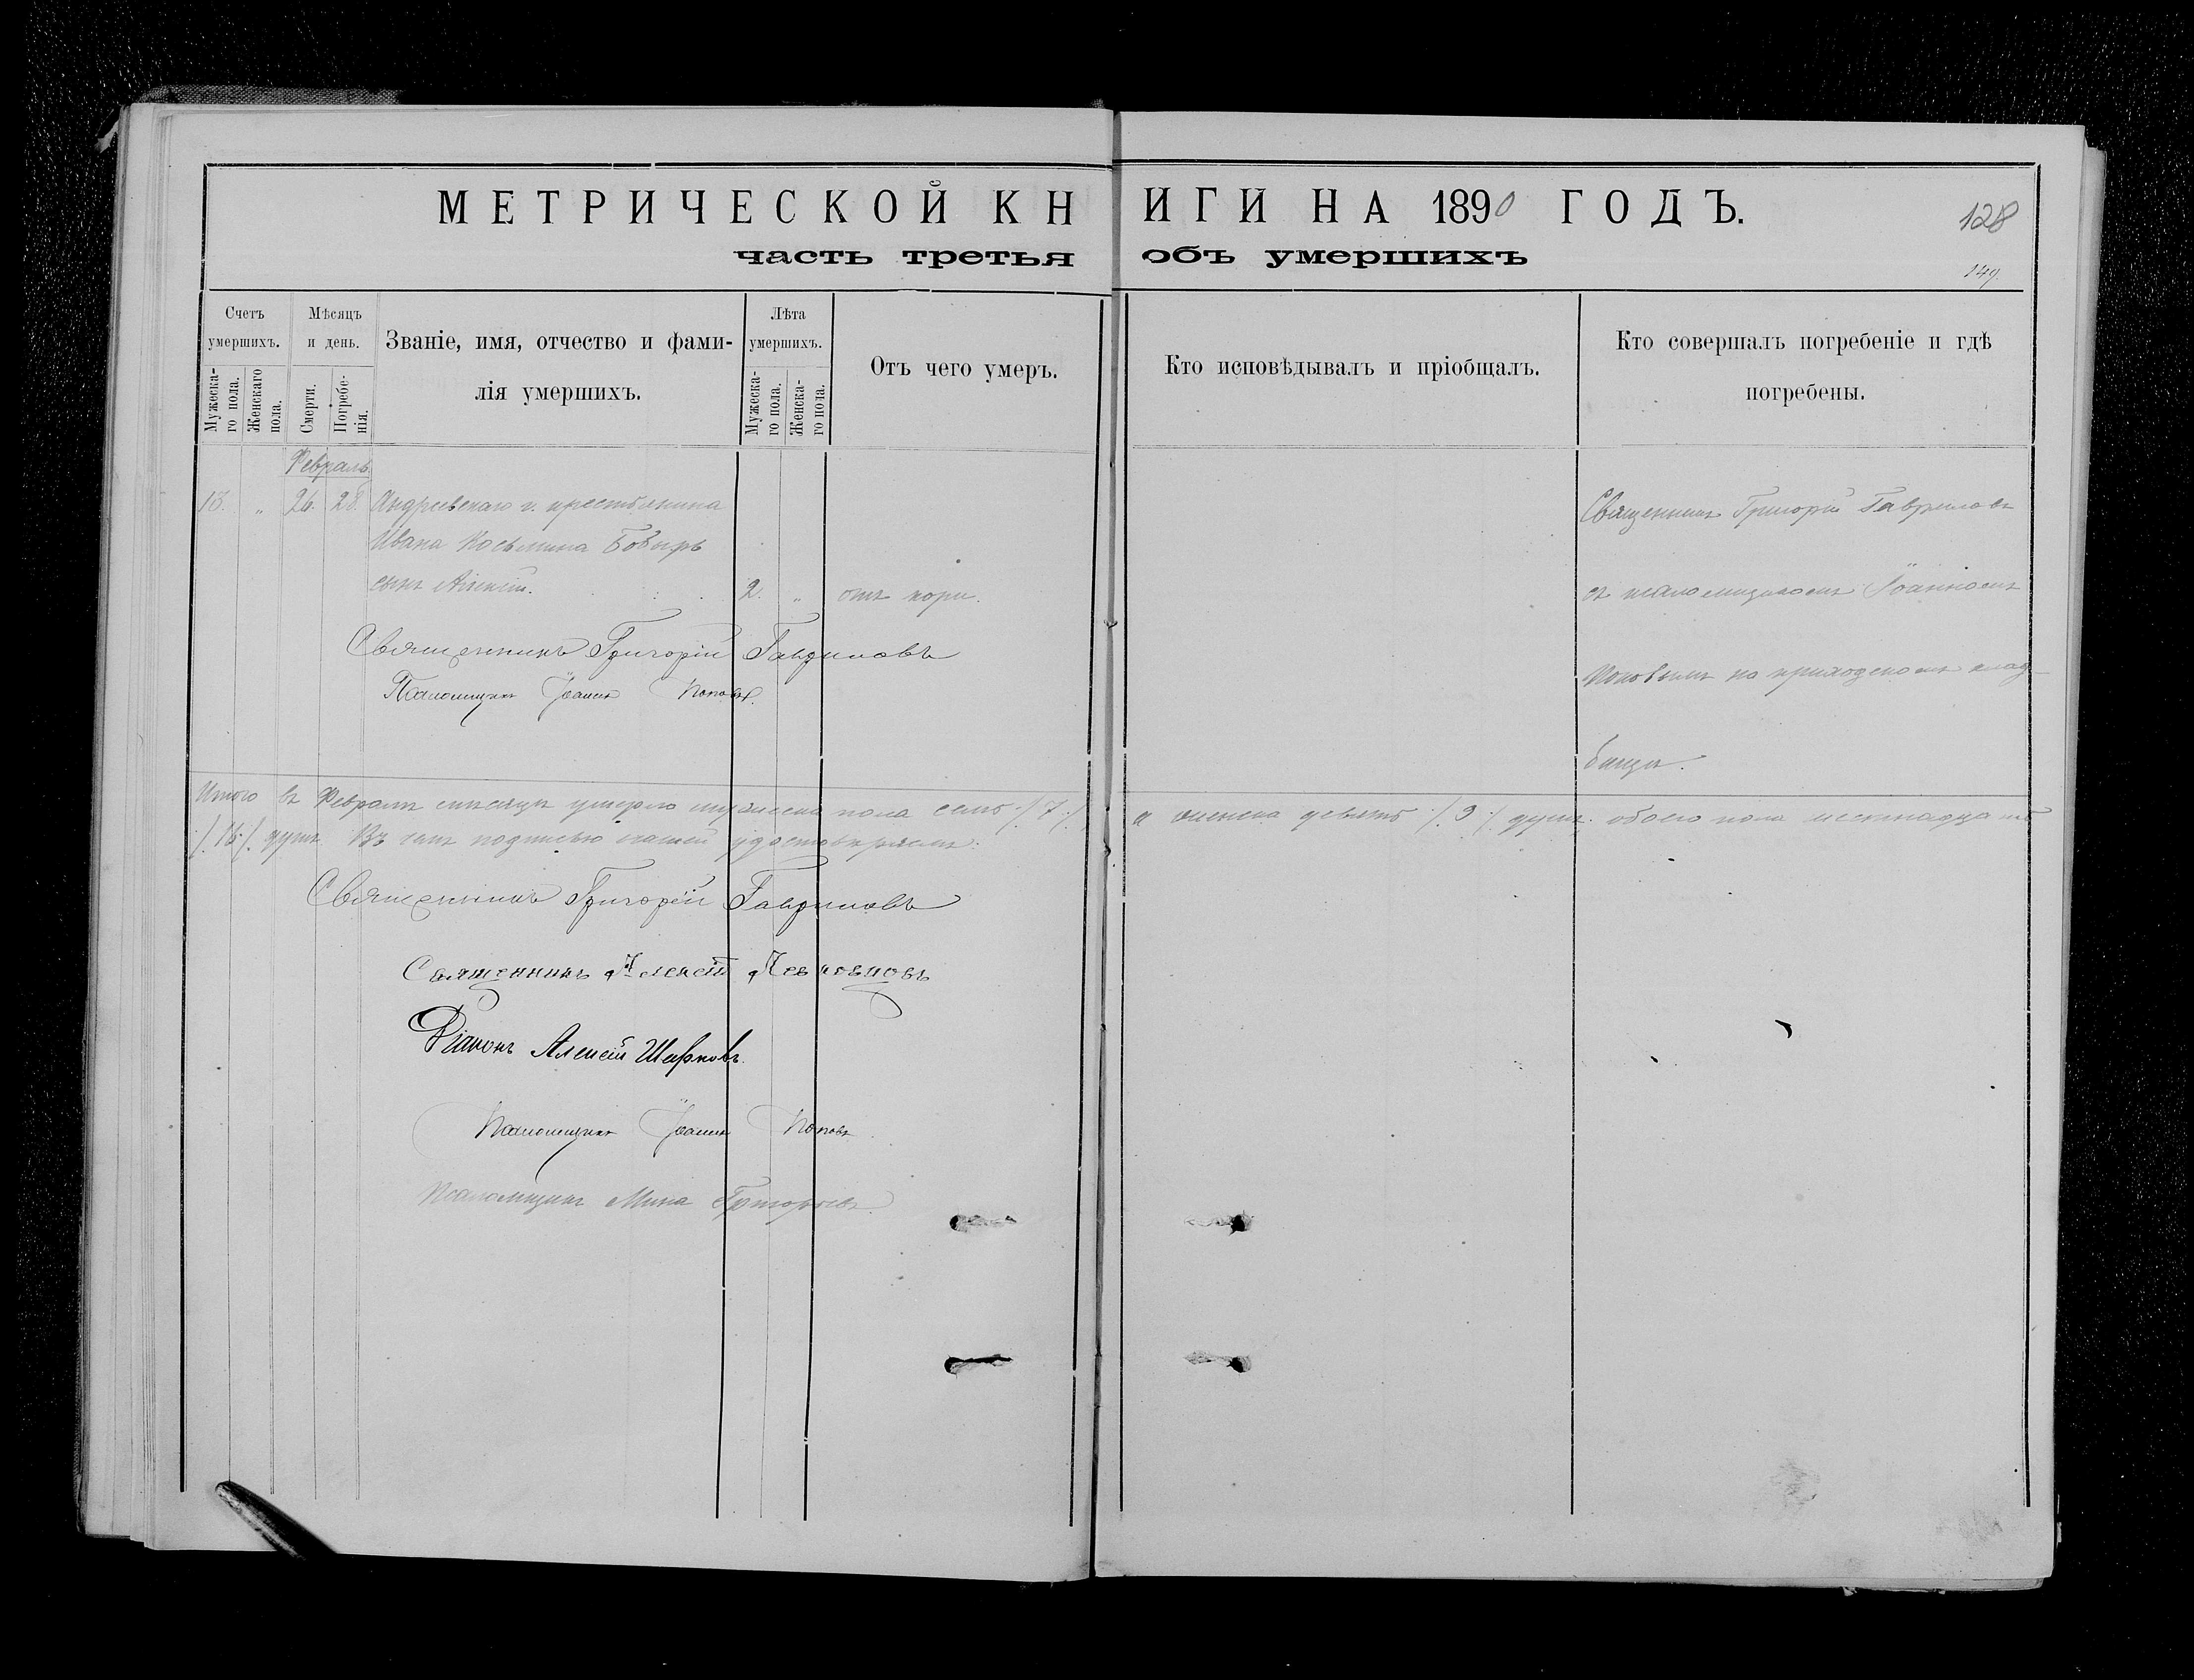 МЕТРИЧЕСКОЙ КНИГИ НА 1890 ГОДЪ.
128
часть третья объ умершихъ
149.
Счетъ умершихъ.
Мужескаго пола.
Женскаго пола.
Мѣсяцъ и день.
Смерти.
Погребенія.
Званіе, имя, отчество и фамилія умершихъ.
Лѣта умершихъ.
Мужескаго пола.
Женскаго пола.
Отъ чего умеръ.
Кто исповѣдывалъ и пріобщалъ.
Кто совершалъ погребеніе и гдѣ погребены.
Февраль.
13. „ 26. 28. Андреевскаго крестьянина
Ивана Косьмина Бобырь
сынъ Алексій. 2. „ отъ кори.
Священникъ Григорій Гавриловъ
съ псаломщикомъ Іоанномъ
Поповымъ на приходскомъ клад-
бищѣ.
Священникъ Григорій Гавриловъ
Псаломщикъ Іоаннъ Поповъ.
Итого въ Февралѣ мѣсяцѣ умерло мужеска пола семь ./.7./. а женска девять ./.9./. душъ. обоего пола шестнадцать
./.16./. душъ. Въ чемъ подписью нашей удостовѣряемъ:
Священникъ Григорій Гавриловъ
Священникъ Алексій
Діаконъ Алексій Шарковъ.
Псаломщикъ Іоаннъ Поповъ
Псаломщикъ Мина Григорьевъ.